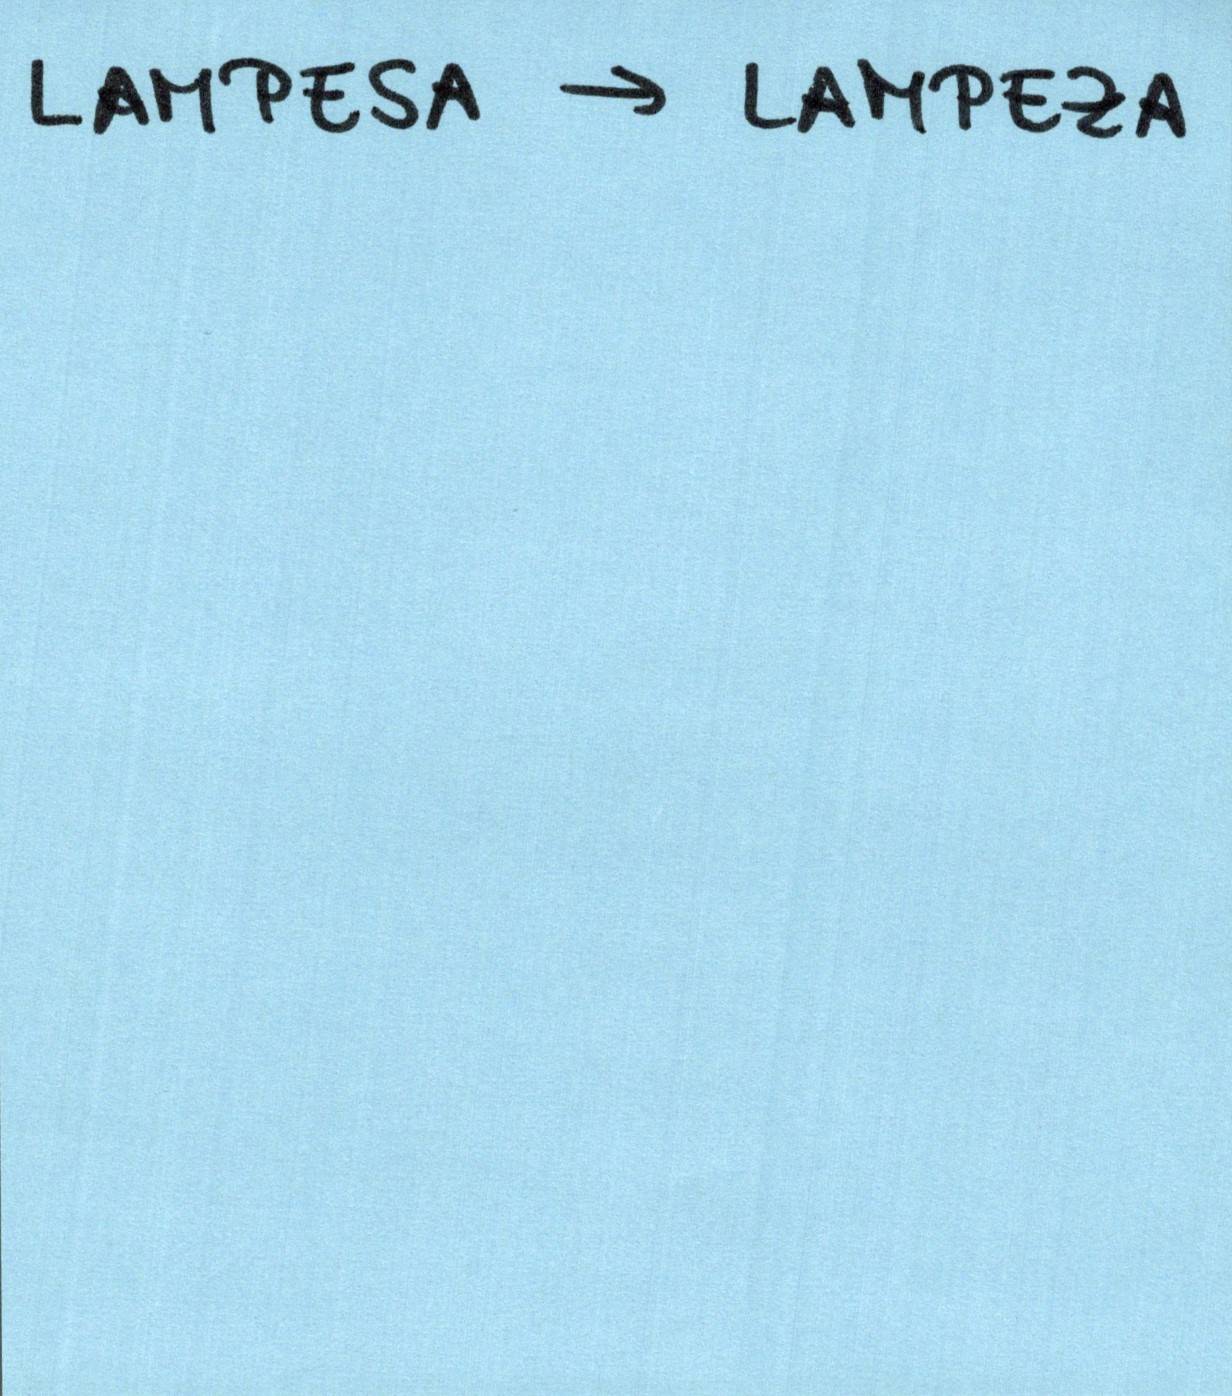 LAMPESA → LAMPEZA